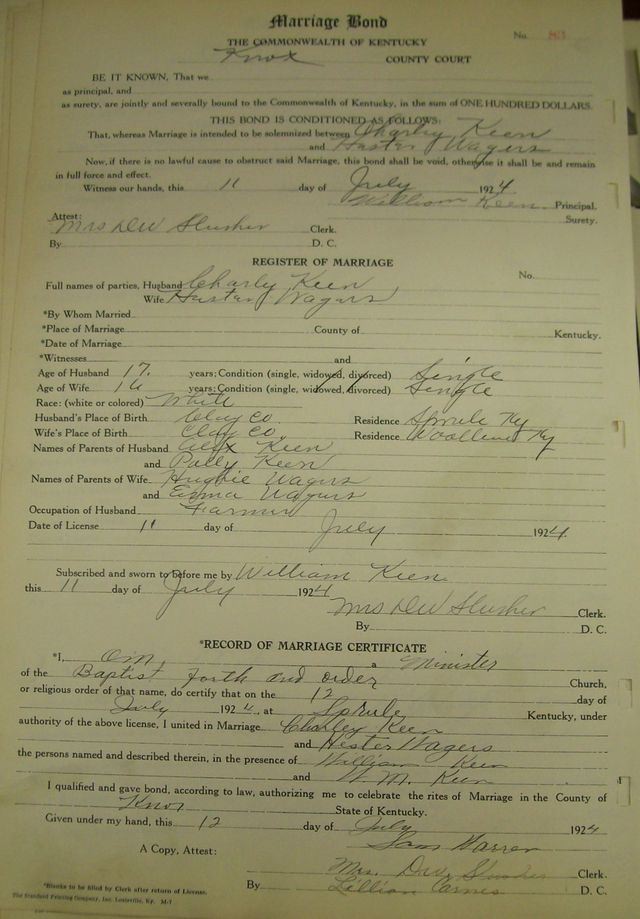 Marriage Bond
No. 83
THE COMMONWEALTH OF KENTUCKY
Knox COUNTY COURT
BE IT KNOWN, That we
as principal, and
as surety, are jointly and severally bound to the Commonwealth of Kentucky, in the sum of ONE HUNDRED DOLLARS.
THIS BOND IS CONDITIONED AS FOLLOWS:
That, whereas Marriage is intended to be solemnized between Charley Keen
and Hester Wagers
Now, if there is no lawful cause to obstruct said Marriage, this bond shall be void, otherwise it shall be and remain
in full force and effect.
Witness our hands, this 11 day of July 1924
William Keen Principal.
Attest: Surety.
Mrs D W Slusher Clerk.
By D. C.
REGISTER OF MARRIAGE
No.
Full names of parties, Husband Charly Keen
Wife Hustar Wagers
*By Whom Married
*Place of Marriage County of Kentucky.
*Date of Marriage
*Witnesses and
Age of Husband 17 years; Condition (single, widowed, divorced) Single
Age of Wife 16 years; Condition (single, widowed, divorced) Single
Race: (white or colored) White
Husband's Place of Birth Clay Co. Residence Sprule Ky
Wife's Place of Birth Clay Co. Residence Woolline Ky
Names of Parents of Husband Alex Keen
and Polly Keen
Names of Parents of Wife Hughie Wagers
and Emma Wagers
Occupation of Husband Farmer
Date of License 11 day of July 1924
Subscribed and sworn to before me by William Keen
this 11 day of July 1924
Mrs D W Slusher Clerk.
By D. C.
*RECORD OF MARRIAGE CERTIFICATE
*I, a Minister
of the Baptist forth and order Church,
or religious order of that name, do certify that on the 12 day of
July 1924, at Sprule Kentucky, under
authority of the above license, I united in Marriage Charley Keen
and Hester Wagers
the persons named and described therein, in the presence of William Keen
and W. M. Keen
I qualified and gave bond, according to law, authorizing me to celebrate the rites of Marriage in the County of
Knox State of Kentucky.
Given under my hand, this 12 day of July 1924
Sam Warren
A Copy, Attest:
Mrs. D W Slusher Clerk.
By Lillian Carnes D. C.
*Blanks to be filled by Clerk after return of License.
The Standard Printing Company, Inc. Louisville, Ky. M-7